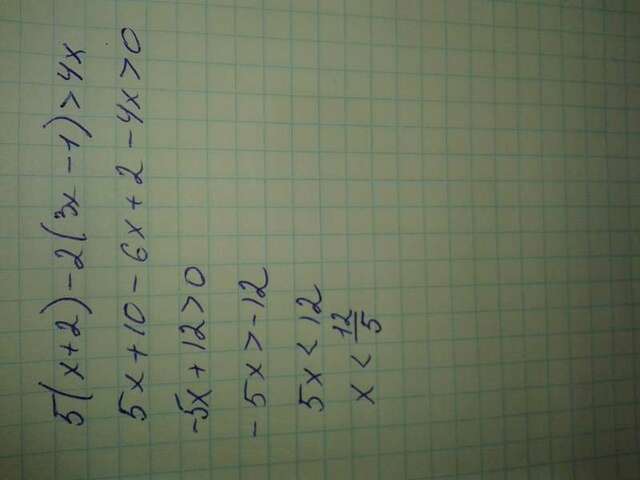 5(x+2)-2(3x-1)>4x
5x+10-6x+2-4x>0
-5x+12>0
-5x>-12
5x<12
x<12/5